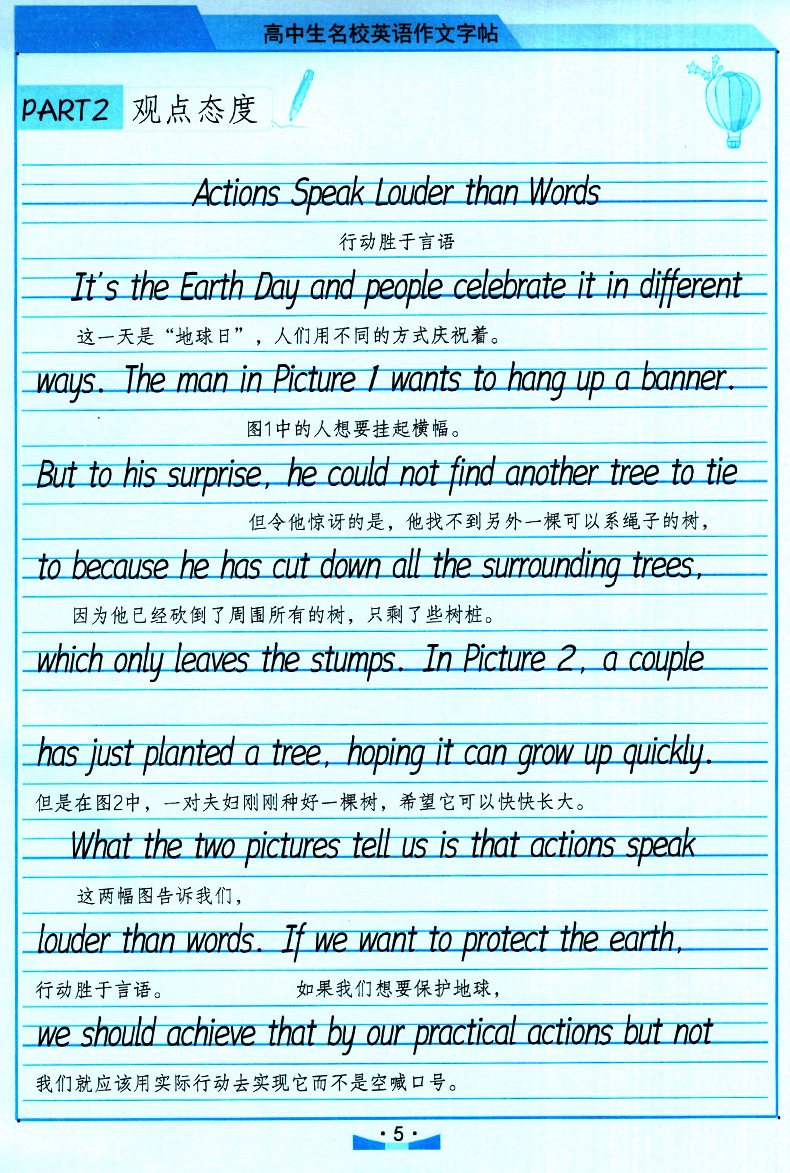 高中生名校英语作文字帖
PART2 观点态度
Actions Speak Louder than Words
行动胜于言语
It's the Earth Day and people celebrate it in different
这一天是“地球日”，人们用不同的方式庆祝着。
ways. The man in Picture 1 wants to hang up a banner.
图1中的人想要挂起横幅。
But to his surprise, he could not find another tree to tie
但令他惊讶的是，他找不到另外一棵可以系绳子的树，
to because he has cut down all the surrounding trees,
因为他已经砍倒了周围所有的树，只剩了些树桩。
which only leaves the stumps. In Picture 2, a couple
has just planted a tree, hoping it can grow up quickly.
但是在图2中，一对夫妇刚刚种好一棵树，希望它可以快快长大。
What the two pictures tell us is that actions speak
这两幅图告诉我们，
louder than words. If we want to protect the earth,
行动胜于言语。 如果我们想要保护地球，
we should achieve that by our practical actions but not
我们就应该用实际行动去实现它而不是空喊口号。
·5·